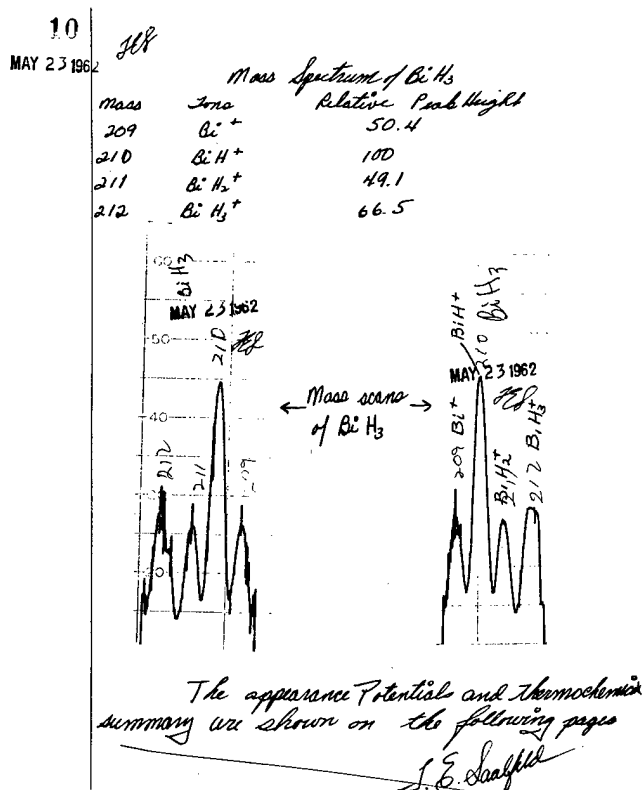 10
MAY 23 1962
Mass Spectrum of BiH3
Mass Ions Relative Peak Height
209 Bi+ 50.4
210 BiH+ 100
211 BiH2+ 49.1
212 BiH3+ 66.5
60
BiH3
MAY 23 1962
50
210
40
212
211
209
30
20
← Mass scans →
of BiH3
BiH+
210 BiH3
MAY 23 1962
209 Bi+
BiH2+
212 BiH3+
The appearance Potentials and thermochemical
summary are shown on the following pages
F. E. Saalfeld